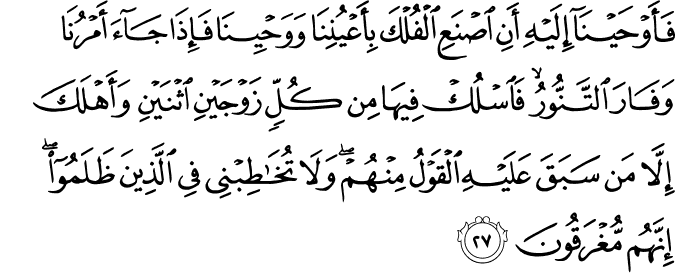 فَأَوْحَيْنَآ إِلَيْهِ أَنِ ٱصْنَعِ ٱلْفُلْكَ بِأَعْيُنِنَا وَوَحْيِنَا فَإِذَا جَآءَ أَمْرُنَا
وَفَارَ ٱلتَّنُّورُ ۙ فَٱسْلُكْ فِيهَا مِن كُلٍّ زَوْجَيْنِ ٱثْنَيْنِ وَأَهْلَكَ
إِلَّا مَن سَبَقَ عَلَيْهِ ٱلْقَوْلُ مِنْهُمْ ۖ وَلَا تُخَٰطِبْنِى فِى ٱلَّذِينَ ظَلَمُوٓا۟ ۖ
إِنَّهُم مُّغْرَقُونَ ٢٧